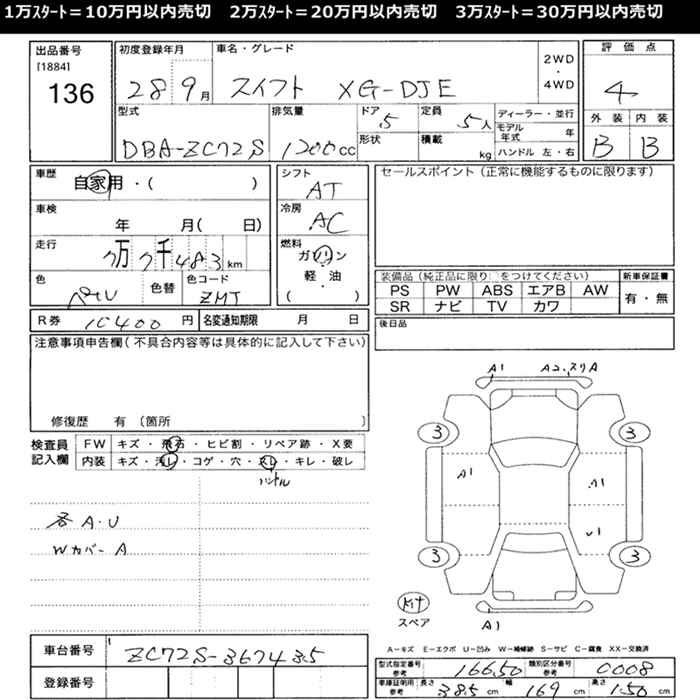 1万ｽﾀｰﾄ＝10万円以内売切　2万ｽﾀｰﾄ＝20万円以内売切　3万ｽﾀｰﾄ＝30万円以内売切
出品番号
[1884]
136
初度登録年月
28 9月
車名・グレード
スイフト XG-DJE
2WD
・
4WD
評価点
4
外装 内装
B B
型式
DBA-ZC72S
排気量
1200cc
ドア
5
形状
定員
5人
積載
kg
ディーラー・並行
モデル年式 年
ハンドル 左・右
車歴
自家用・( )
車検
年 月( 日)
走行
7万7千483km
色
パール
色替
色コード
ZMT
シフト
AT
冷房
AC
燃料
ガソリン
軽・油
( )
セールスポイント（正常に機能するものに限ります）
装備品（純正品に限り○をつけてください）
PS PW ABS エアB AW
SR ナビ TV カワ
新車保証書
有・無
後日品
R券 10400 円 名変通知期限 月 日
注意事項申告欄（不具合内容等は具体的に記入して下さい）
修復歴 有（箇所
検査員
記入欄
FW キズ・飛石・ヒビ割・リペア跡・X要
内装 キズ・汚レ・コゲ・穴・スレ・キレ・破レ
ハンドル
各A・U
Wカバー A
A1 A2.スリA
3 3
A1 A1
U1
3 3
ｷｯﾄ
スペア
A1
A－キズ E－エクボ U－凹み W－補修跡 S－サビ C－腐食 XX－交換済
車台番号 ZC72S-367435
登録番号
型式指定番号
参考
16650
類別区分番号
参考
0008
車庫証明用
参考
長さ 385cm 幅 169cm 高さ 150cm